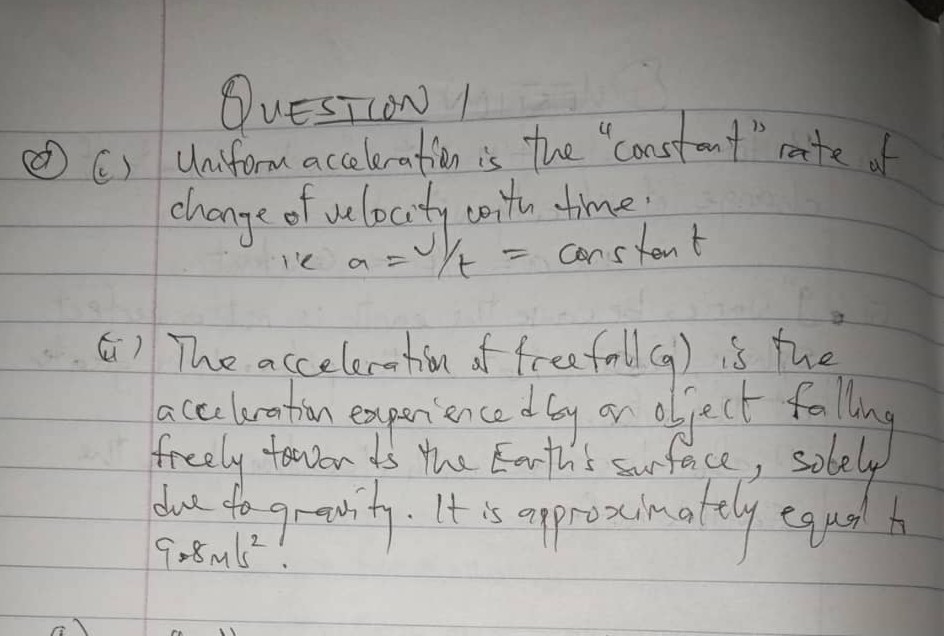 QUESTION 1
(i) Uniform acceleration is the "constant" rate of
change of velocity with time.
i.e a = v/t = constant
(ii) The acceleration of free fall (g) is the
acceleration experienced by an object falling
freely towards the Earth's surface, solely
due to gravity. It is approximately equal to
9.8m/s².